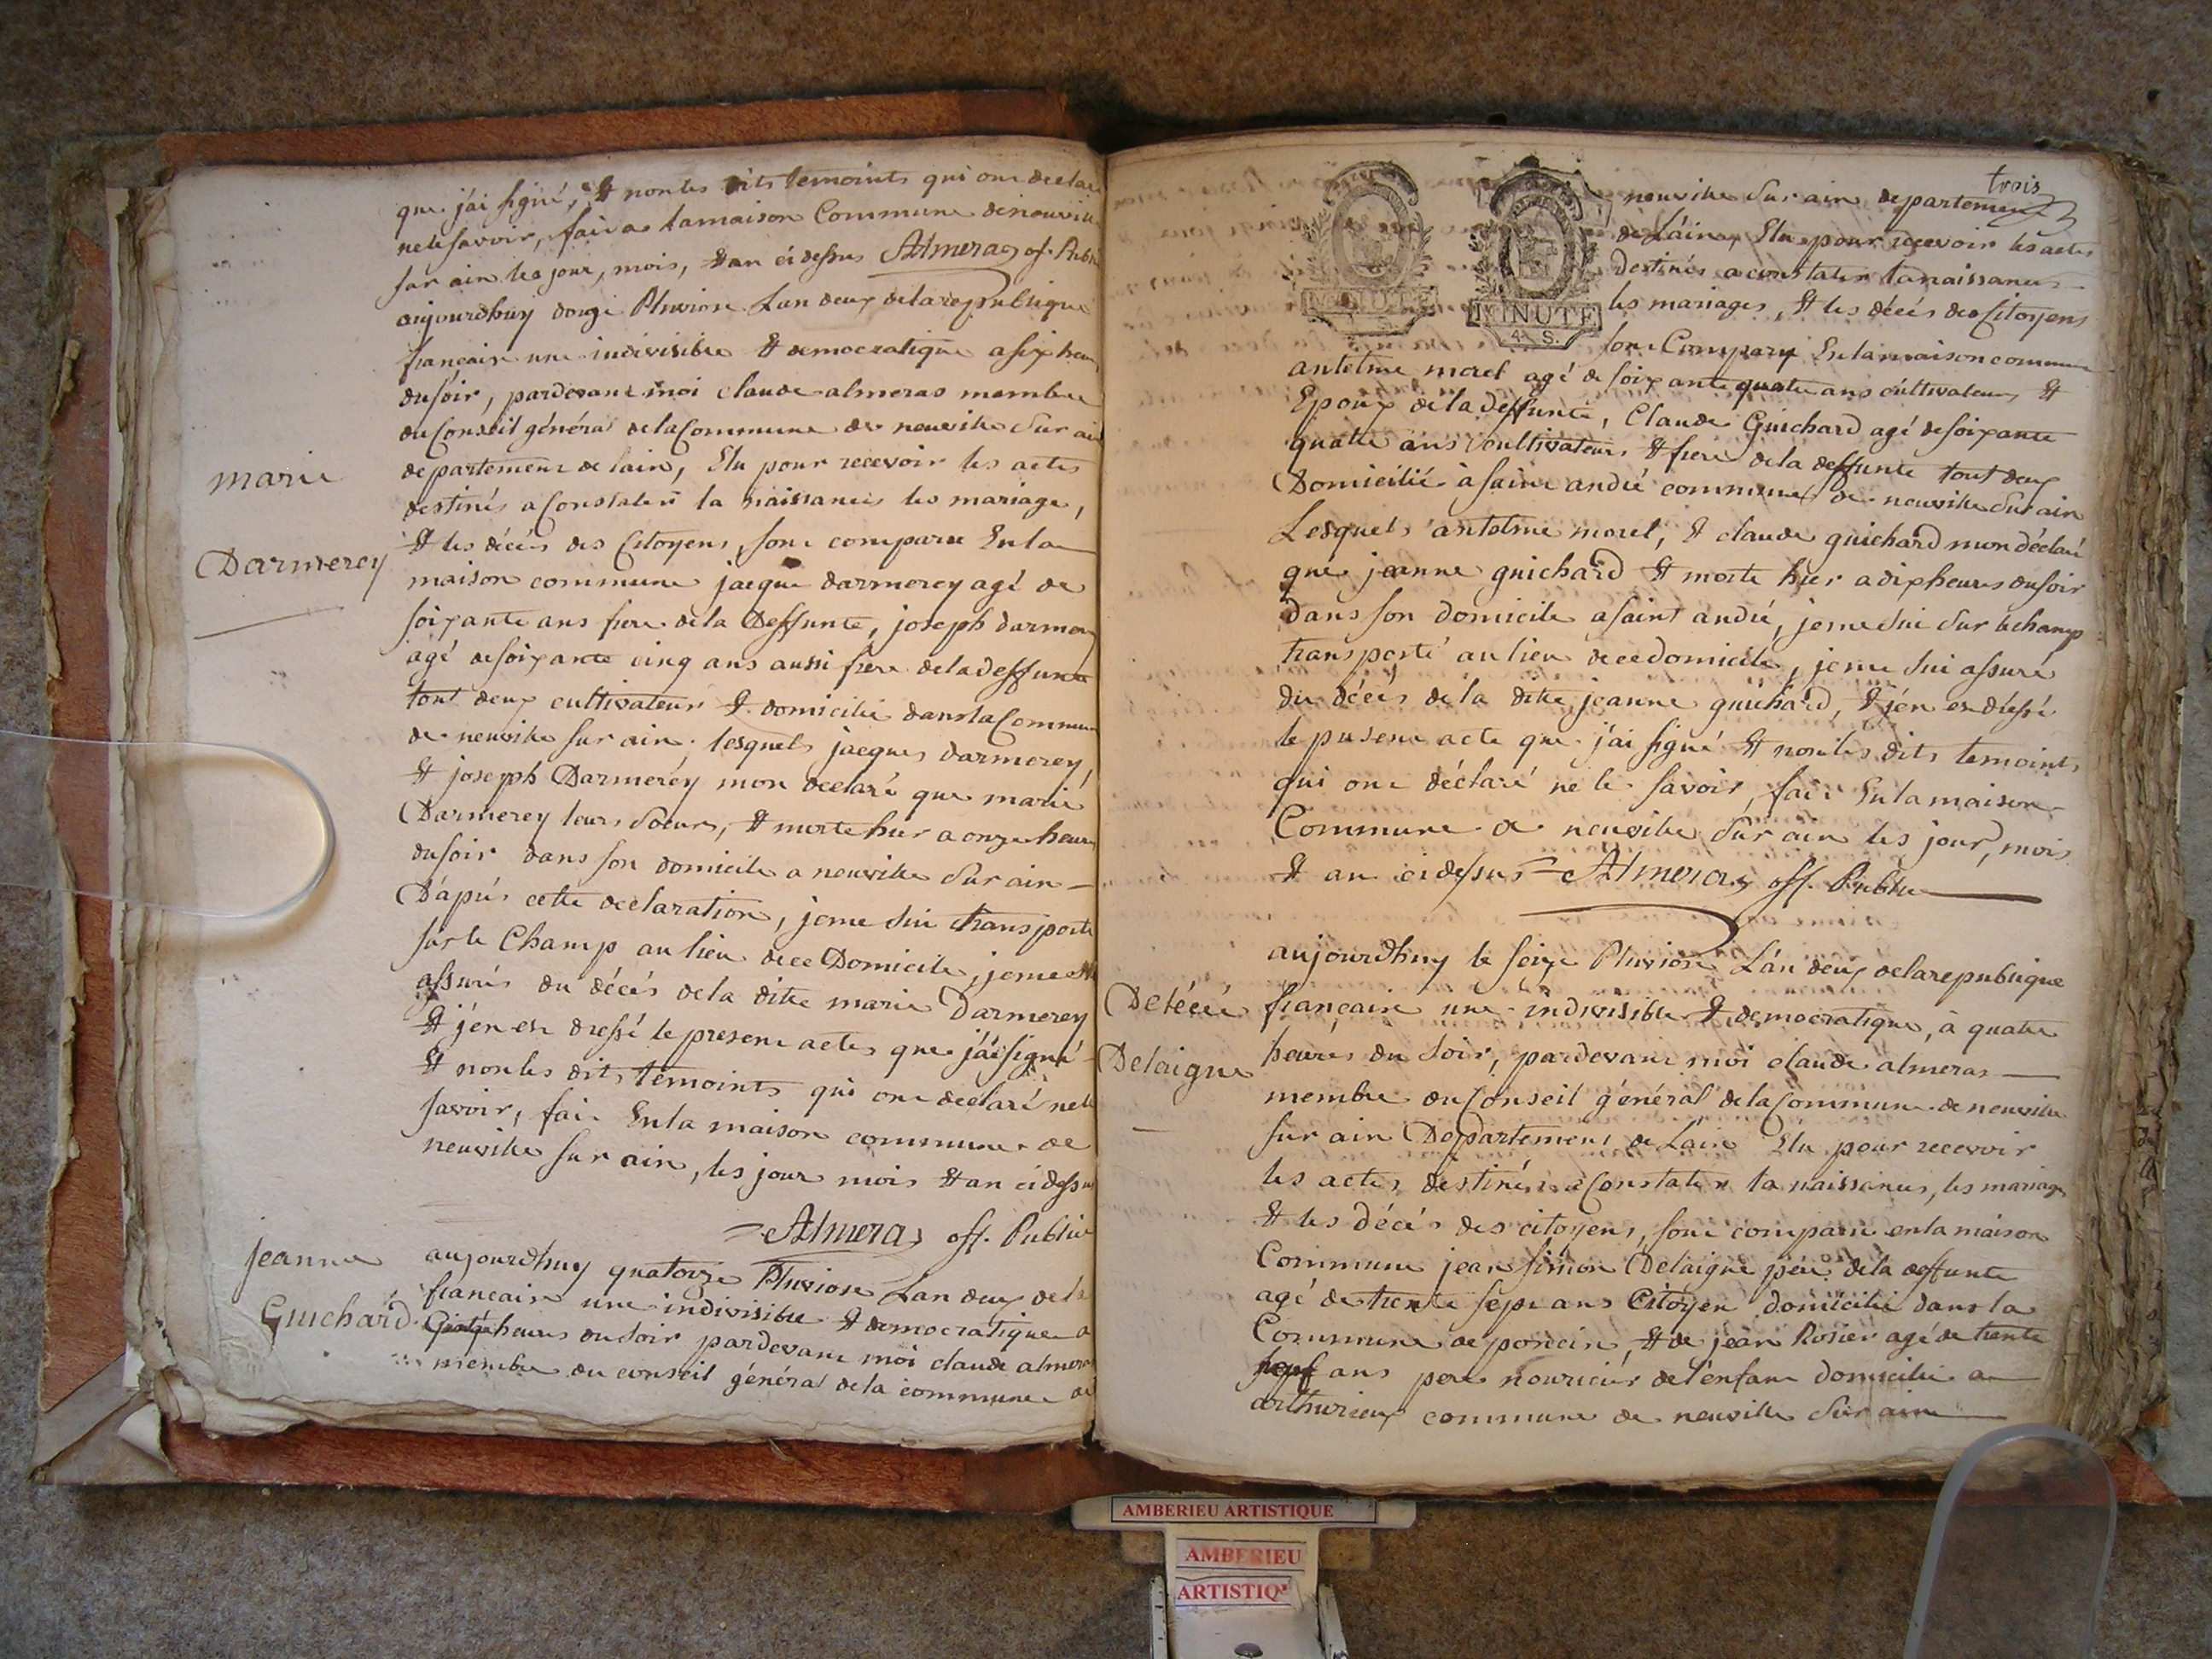 que j'ai signé, et non les dits temoints qui ont declaré
ne le savoir, fait a la maison Commune de neuville
sur ain les jour, mois, et an ci dessus Almeras of. Public
aujourdhuy douze Pluviose Lan deux de la republique
francaise une indivisible et democratique a six heures
du soir, pardevant moi claude almeras membre
du Conseil général de la Commune de neuville Sur ain
departement de lain, Elu pour recevoir les actes
marie
destinés a Constater la naissances les mariage,
Darmerey
et les décés des Citoyens, sont comparu En la
maison commune jacque darmerey agé de
soixante ans frere de la Deffunte, joseph darmerey
agé de soixante cinq ans aussi frere de la deffunte
tout deux cultivateur et domicilié dans la Commune
de neuville sur ain. lesquels jacques darmerey,
et joseph Darmeréy mon declaré que marie
Darmerey leurs Soeurs, et morte hier a onze heures
du soir dans son domicile a neuville Sur ain
D'aprés cette declaration, je me sui transporté
sur le Champ au lieu de ce Domicile, je me sui
assurés du décés de la dite marie Darmerey
et j'en est dressé le present actes que j'ai signé
et non les dits temoints qui ont declaré ne le
savoir, fait En la maison commune de
neuville sur ain, les jour mois et an ci dessus
Almeras off. Public
jeanne
aujourdhuy quatorze Pluviose Lan deux de la
Guichard
francaise une indivisible et democratique a
heures du Soir pardevant moi claude almeras
membre du conseil général de la commune de
trois
neuville Sur ain departement
de L'ain, Elu pour recevoir les actes
destinés a constater la naissances
les mariages, et les décés des Citoyens
MINUTE
MINUTE
4 S.
sont Comparu En la maison commune
antelme morel agé de soixante quatre ans cultivateur, et
Epoux de la deffunte, Claude Guichard agé de soixante
quatre ans cultivateur et frere de la deffunte tout deux
Domicilié à saint andré commune de neuville Sur ain
Lesquels antelme morel, et claude guichard mon déclaré
que jeanne guichard et morte hier a dix heures du soir
dans son domicile a saint andré, je me sui Sur le champ
transporté au lieu de ce domicile, je me sui assuré
du décés de la dite jeanne guichard, et j'en est dressé
le present acte que j'ai signé et non les dits temoints
qui ont déclaré ne le savoir, fait En la maison
Commune de neuville Sur ain les jour, mois
et an ci dessus Almeras off. Public
aujourdhuy le seize Pluviose L'an deux de la republique
francaise une indivisible et democratique, à quatre
Delaigue
heures du Soir, pardevant moi claude almeras
membre du Conseil général de la Commune de neuville
sur ain Departement de L'ain Elu pour recevoir
les actes destinés a Constater la naissances, les mariages
et les décés des citoyens, sont comparu en la maison
Commune jean simon Delaigue pere de la deffunte
agé de trente sept ans Citoyen domicilié dans la
Commune de poncin, et de jean Rosier agé de trente
neuf ans pere nouricier de l'enfant domicilié a
arthurieux commune de neuville Sur ain
AMBERIEU ARTISTIQUE
AMBERIEU
ARTISTIQ